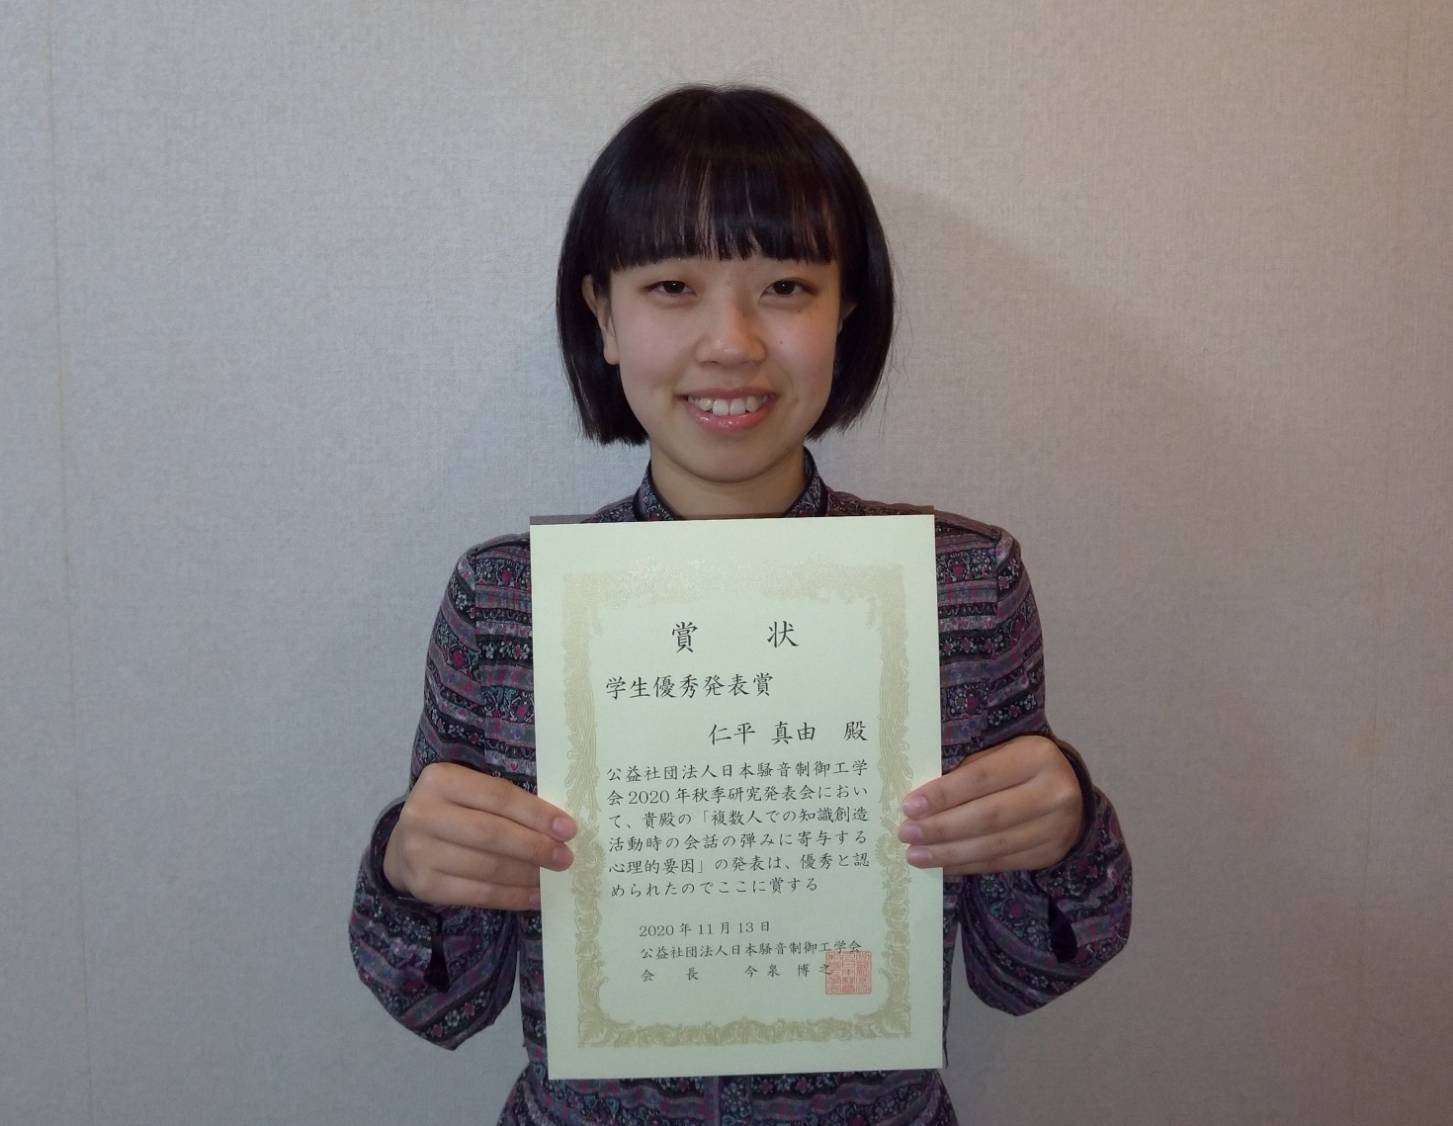 賞 状
学生優秀発表賞
仁平 真由 殿
公益社団法人日本騒音制御工学
会2020年秋季研究発表会におい
て、貴殿の「複数人での知識創造
活動時の会話の弾みに寄与する
心理的要因」の発表は、優秀と認
められたのでここに賞する
2020年11月13日
公益社団法人日本騒音制御工学会
会 長 今泉 博之